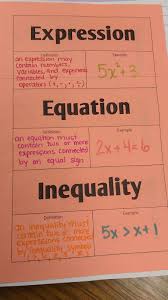 Expression
Definition Example
an expression may
contain numbers,
variables, and exponents
connected by
operators (+, -, ×, ÷)
5x²+3
Equation
Definition Example
an equation must
contain two or more
expressions connected
by an equal sign
2x+4=6
Inequality
Definition Example
an inequality must
contain two or more
expressions connected
by inequality symbol
5x > x+1